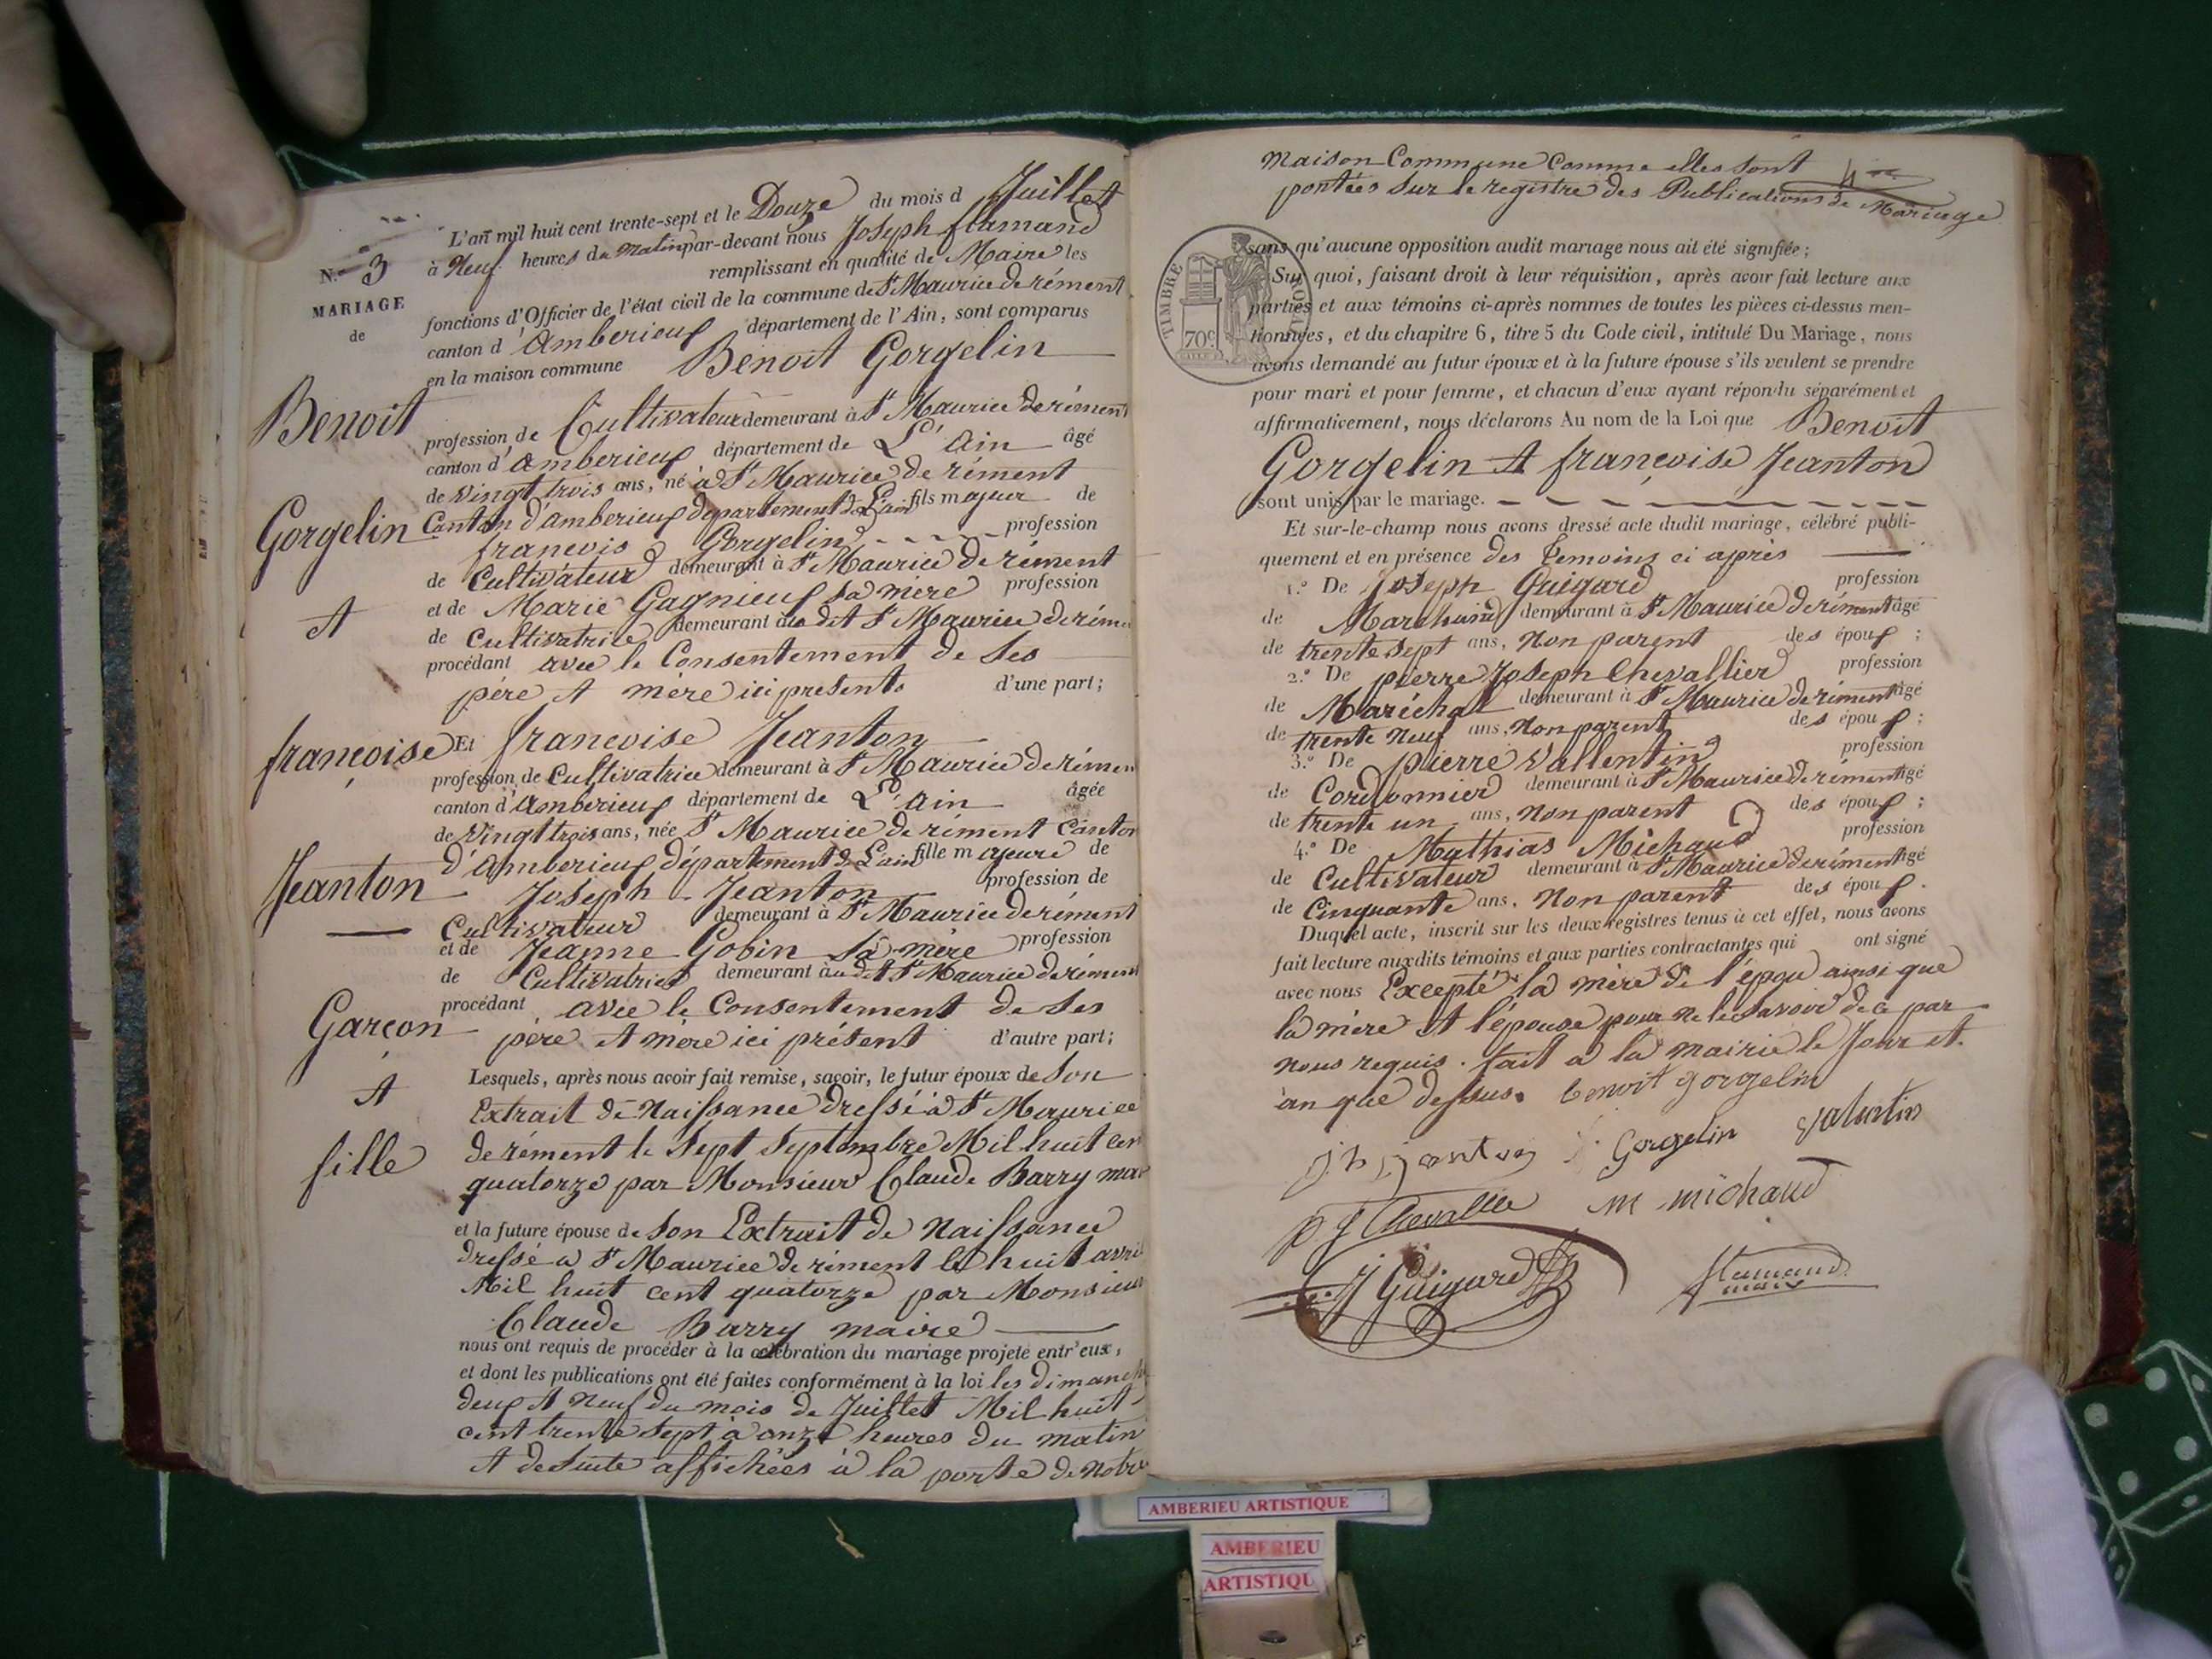 N.º 3
MARIAGE
de
Benoit
Gorgelin
et
françoise
Jeanton
Garçon
et
fille
L'an mil huit cent trente-sept et le Douze du mois d Juillet
à Neuf heures du matin par-devant nous Joseph flamand
remplissant en qualité de Maire les
fonctions d'Officier de l'état civil de la commune de St Maurice de rément
canton d'Amberieux département de l'Ain, sont comparus
en la maison commune Benoit Gorgelin
profession de Cultivateur demeurant à St Maurice de rément
canton d'amberieux département de L'ain âgé
de vingt trois ans, né à St Maurice de rément
Canton d'amberieux département de L'ain fils majeur de
francois Gorgelin profession
de Cultivateur demeurant à St Maurice de rément
et de Marie Gagnieux sa mère profession
de Cultivatrice demeurant au dit St Maurice de réme
procédant avec le Consentement de ses
père et mère ici présents d'une part;
Et francoise Jeanton
profession de Cultivatrice demeurant à St Maurice de rémen
canton d'amberieux département de L'ain âgée
de Vingt trois ans, née St Maurice de rément Canton
d'Amberieux département de L'ain fille majeure de
Joseph Jeanton profession de
Cultivateur demeurant à St Maurice de rément
et de Jeanne Gobin sa mère profession
de Cultivatrice demeurant au dit St Maurice de rément
procédant avec le Consentement de ses
père et mère ici présent d'autre part;
Lesquels, après nous avoir fait remise, savoir, le futur époux de son
Extrait de Naissance dressé à St Maurice
de rément le sept septembre Mil huit cen
quatorze par Monsieur Claude Barry mai
et la future épouse de son Extrait de Naissance
dressé a St Maurice de rément le huit avri
Mil huit cent quatorze par Monsieur
Claude Barry maire
nous ont requis de procéder à la célébration du mariage projeté entr'eux,
et dont les publications ont été faites conformément à la loi les dimanch
deux et Neuf du mois de Juillet Mil huit
cent trente sept à onze heures du matin
et de suite affichées à la porte de Notre
maison Commune Comme elles sont
portées sur le registre des Publications de Mariage
TIMBRE ROYAL
70c
sans qu'aucune opposition audit mariage nous ait été signifiée;
Sur quoi, faisant droit à leur réquisition, après avoir fait lecture aux
parties et aux témoins ci-après nommés de toutes les pièces ci-dessus men-
tionnées, et du chapitre 6, titre 5 du Code civil, intitulé Du Mariage, nous
avons demandé au futur époux et à la future épouse s'ils veulent se prendre
pour mari et pour femme, et chacun d'eux ayant répondu séparément et
affirmativement, nous déclarons Au nom de la Loi que Benoit
Gorgelin et françoise Jeanton
sont unis par le mariage.
Et sur-le-champ nous avons dressé acte dudit mariage, célébré publi-
quement et en présence des témoins ci après
1.º De Joseph Guigard profession
de Marchand demeurant à St Maurice de rément âgé
de trente sept ans, Non parent des époux;
2.º De pierre Joseph Chevallier profession
de Maréchal demeurant à St Maurice de rément âgé
de trente neuf ans, Non parent des époux;
3.º De pierre Vallentin profession
de Cordonnier demeurant à St Maurice de rément âgé
de trente un ans, Non parent des époux;
4.º De Mathias Michaud profession
de Cultivateur demeurant à St Maurice de rément âgé
de Cinquante ans, Non parent des époux.
Duquel acte, inscrit sur les deux registres tenus à cet effet, nous avons
fait lecture auxdits témoins et aux parties contractantes qui ont signé
avec nous Excepté la mère de l'époux ainsi que
la mère et l'épouse pour ne le savoir de ce par
nous requis. fait à la mairie le Jour et
an que dessus. benoit gorgelin
Gorgelin valentin
p J Chevallie m michaud
J Guigard flamand
maire
AMBERIEU ARTISTIQUE
AMBERIEU
ARTISTIQU